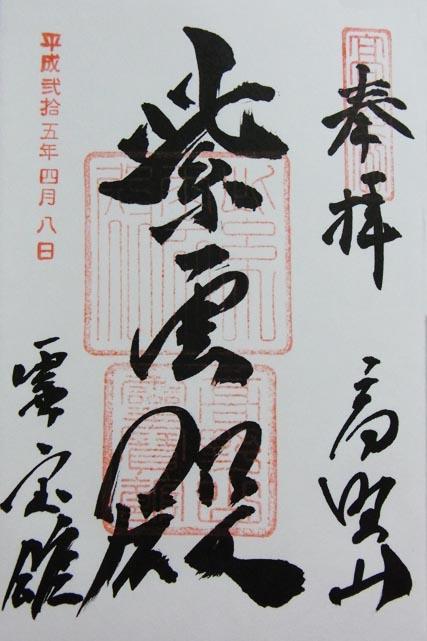 奉拝
高野山
紫雲殿
霊宝館
平成弐拾五年四月八日